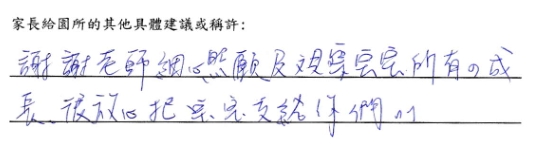 家長給園所的其他具體建議或稱許：
謝謝老師細心照顧及觀察宝宝所有的成
長、很放心把宝宝交給你們^^